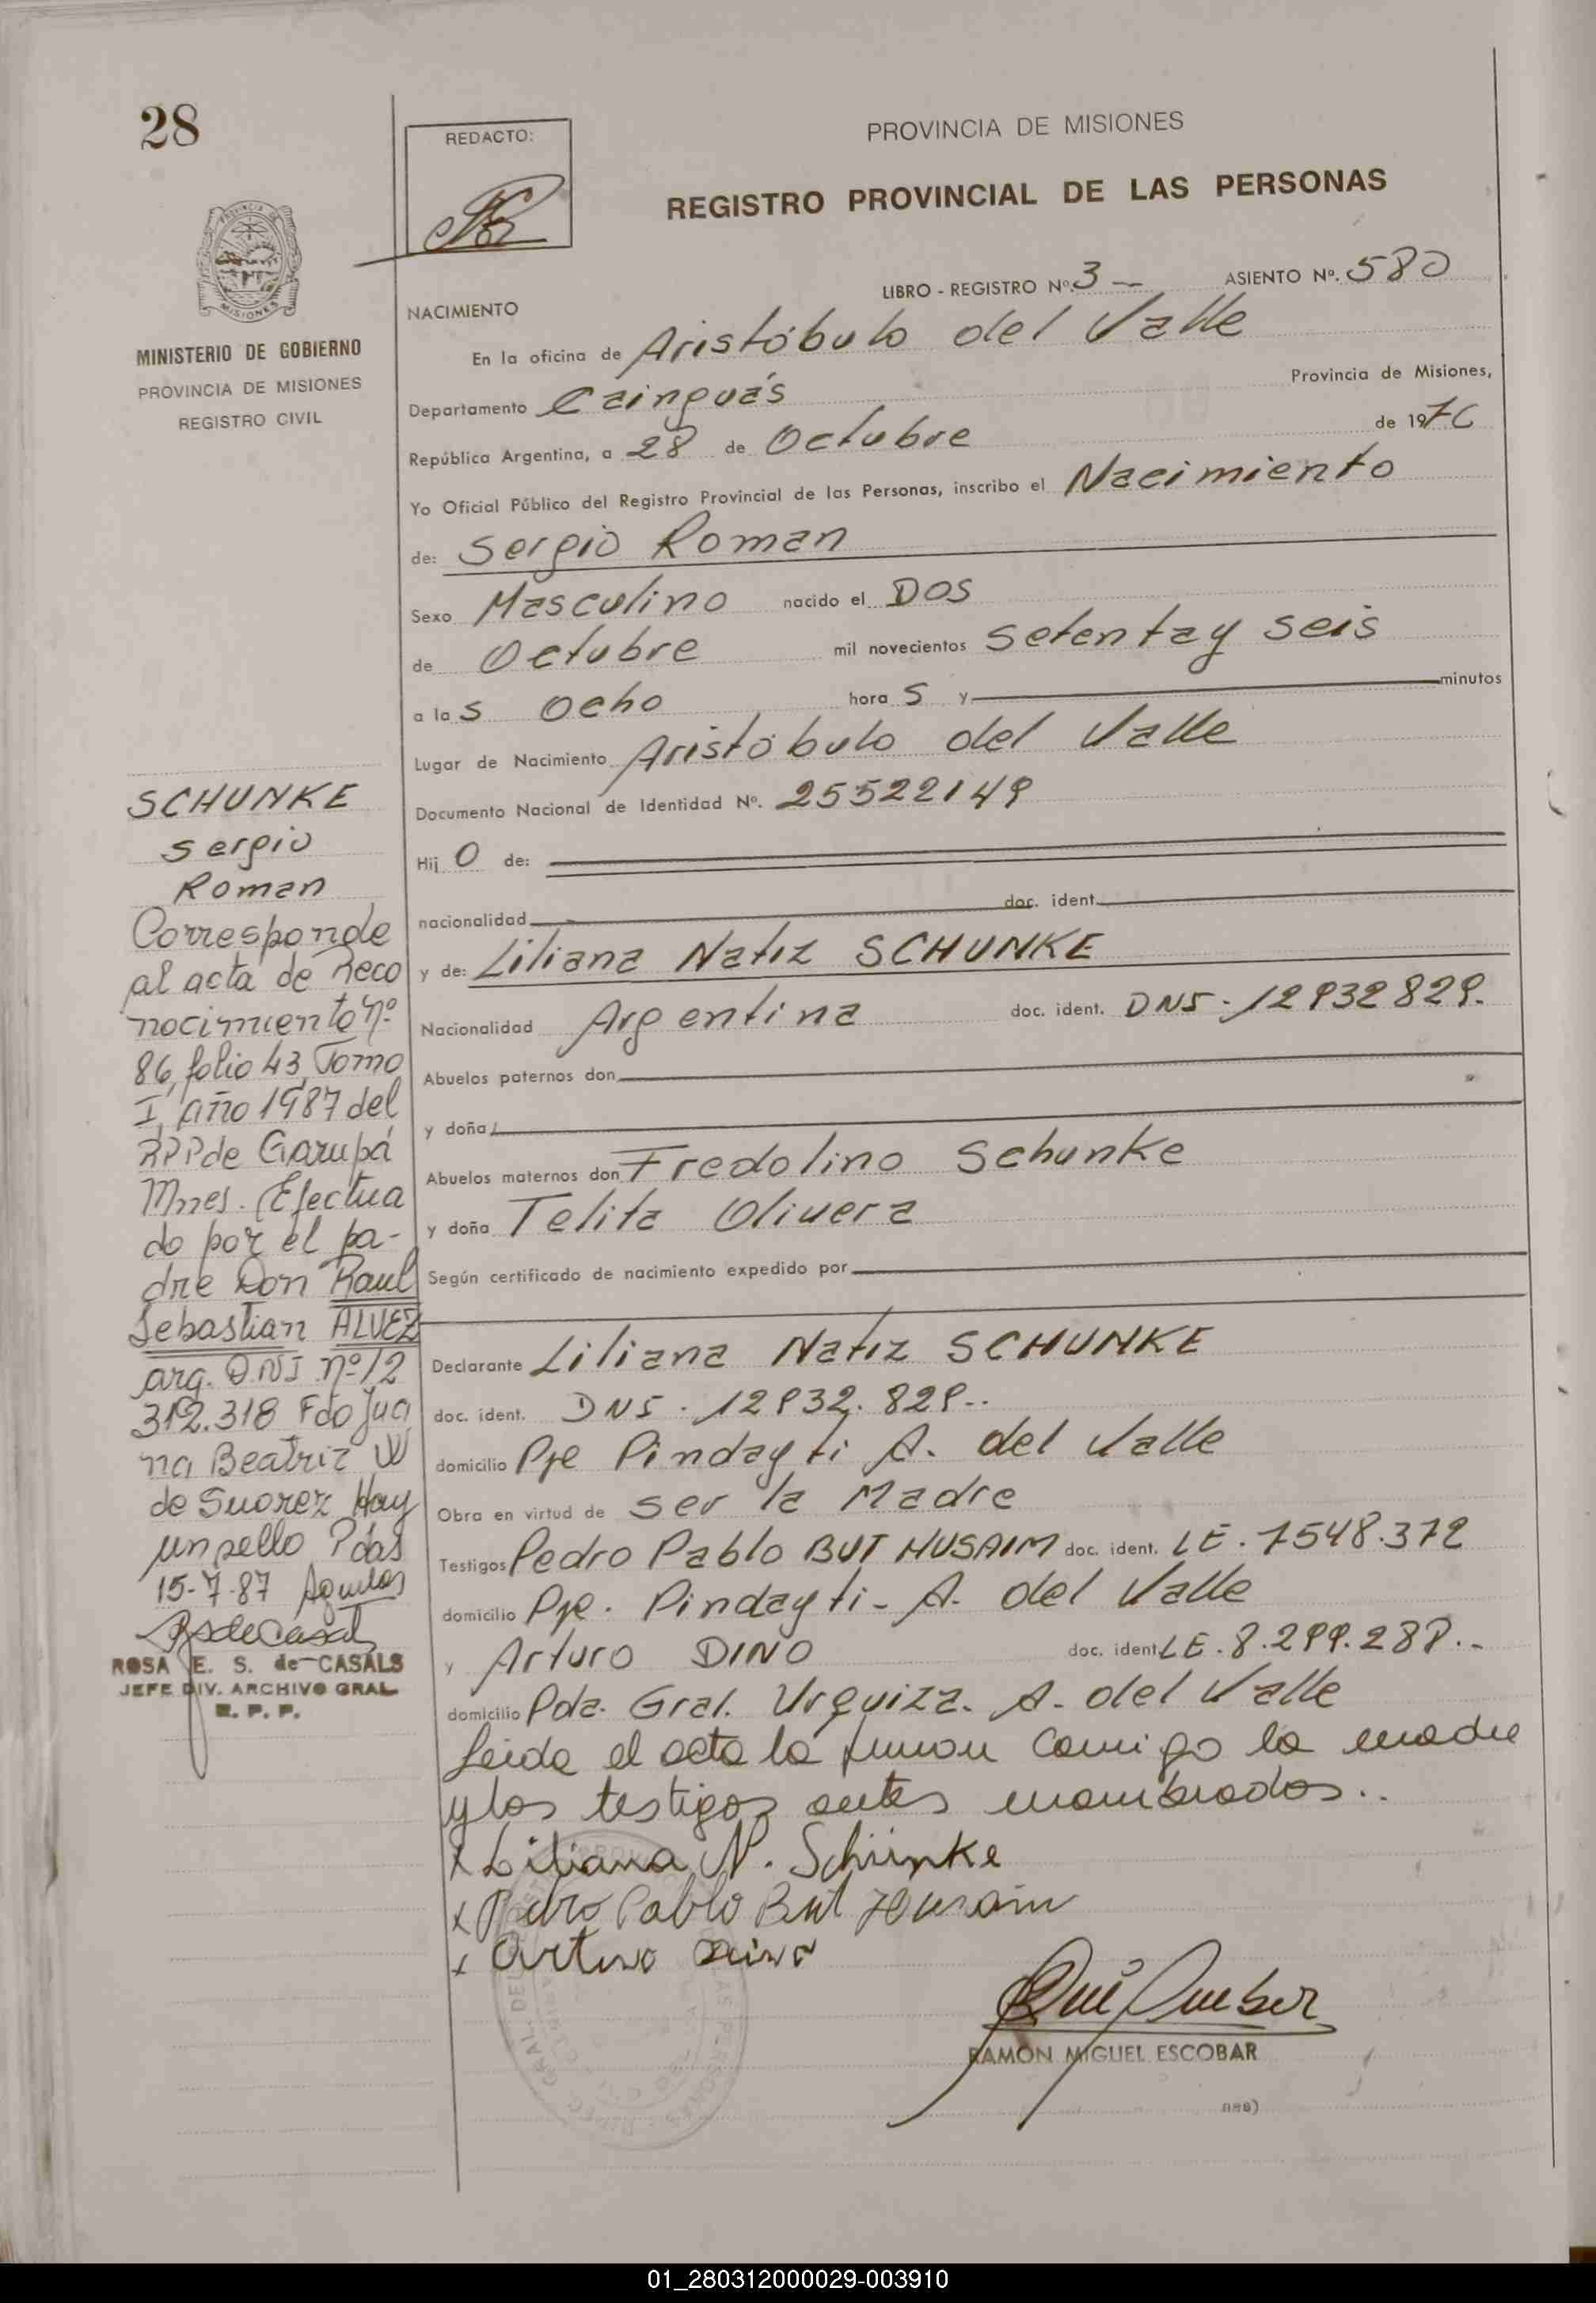 28
REDACTO:
PROVINCIA DE MISIONES
REGISTRO PROVINCIAL DE LAS PERSONAS
MINISTERIO DE GOBIERNO
PROVINCIA DE MISIONES
REGISTRO CIVIL
LIBRO - REGISTRO Nº. 3 — ASIENTO Nº. 580
NACIMIENTO
En la oficina de Aristóbulo del Valle
Departamento Cainguás Provincia de Misiones,
República Argentina, a 28 de Octubre de 1976
Yo Oficial Público del Registro Provincial de las Personas, inscribo el Nacimiento
de: Sergio Roman
Sexo Masculino nacido el DOS
de Octubre mil novecientos setenta y seis
a las ocho horas y minutos
Lugar de Nacimiento Aristóbulo del Valle
Documento Nacional de Identidad Nº. 25522149
Hijo de:
nacionalidad doc. ident.
y de: Liliana Natiz SCHUNKE
Nacionalidad Argentina doc. ident. DNI - 12932829.
Abuelos paternos don
y doña
Abuelos maternos don Fredolino Schunke
y doña Telita Olivera
Según certificado de nacimiento expedido por
Declarante Liliana Natiz SCHUNKE
doc. ident. DNI. 12932.829..
domicilio Pje Pindayti A. del Valle
Obra en virtud de ser la Madre
Testigos Pedro Pablo BUT HUSAIM doc. ident. LE. 7548.372
domicilio Pje. Pindayti - A. del Valle
y Arturo DINO doc. ident LE. 8.299.289.-
domicilio Pda. Gral. Urquiza. A. del Valle
Leida el acta la firman conmigo la madre
y los testigos antes nombrados..
x Liliana N. Schünke
x Pedro Pablo But Husaim
x Arturo Dino
RAMON MIGUEL ESCOBAR
SCHUNKE
Sergio
Roman
Corresponde
al acta de Reco
nocimiento nº
86, folio 43, Tomo
I, año 1987 del
RPP de Garupá
Mnes. Efectua
do por el pa-
dre Don Raul
Sebastian ALVEZ
arg. DNI nº 12
312.318 Fdo Jua
na Beatriz W
de Suarez Hay
un sello Pdas
15-7-87
ROSA E. S. de CASALS
JEFE DIV. ARCHIVO GRAL
R. P. P.
01_280312000029-003910